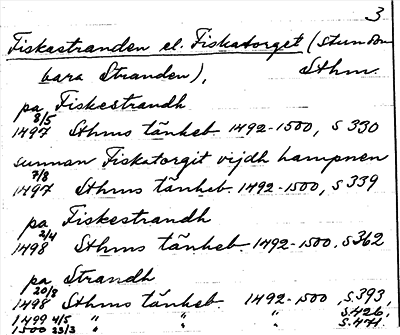 3
Fiskastranden el. Fiskatorget (stundom
bara Stranden), Sthm.
pa Fiskestrandh
8/5
1497 Sthms tänkeb. 1492-1500, s 330
sunnan Fiskatorgit vijdh hampnen
7/8
1497 Sthms tänkeb. 1492-1500, s 339
pa Fiskestrandh
2/4
1498 Sthms tänkeb. 1492-1500, s 362
pa Strandh
20/8
1498 Sthms tänkeb. 1492-1500, s. 393,
1499 4/5 " " " s. 426,
1500 23/3 " " " s. 471.